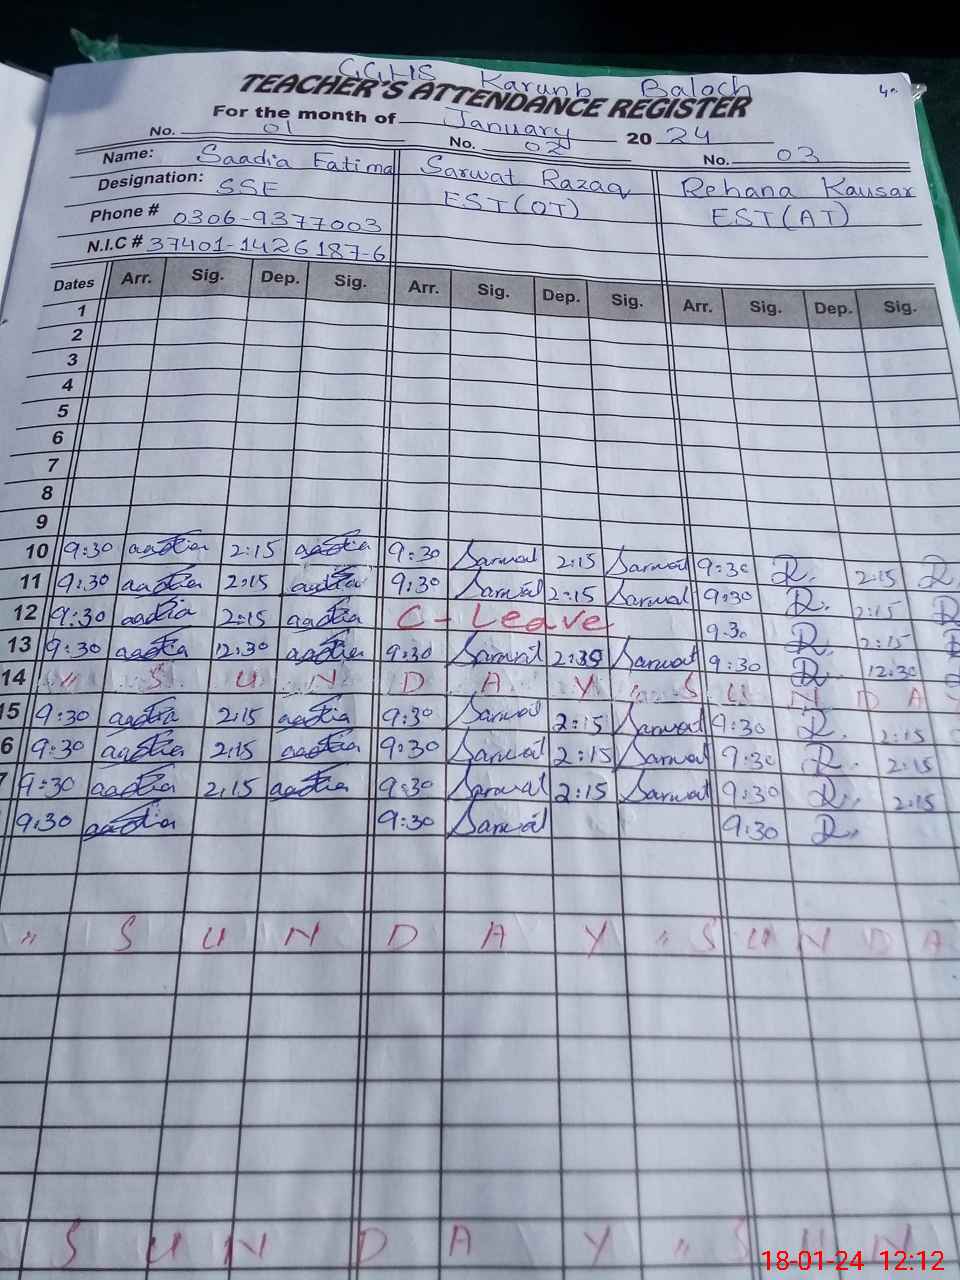 GGHS Karunb Baloch
TEACHER'S ATTENDANCE REGISTER
For the month of January 2024
No. 01 No. 02 No. 03
Name: Saadia Fatima Sarwat Razaq Rehana Kausar
Designation: SSE EST(OT) EST(AT)
Phone # 0306-9377003
N.I.C # 37401-1426187-6
Dates Arr. Sig. Dep. Sig. Arr. Sig. Dep. Sig. Arr. Sig. Dep. Sig.
1
2
3
4
5
6
7
8
9
10 9:30 aadia 2:15 aadia 9:30 Sarwat 2:15 Sarwat 9:30 R. 2:15 R
11 9:30 aadia 2:15 aadia 9:30 Sarwat 2:15 Sarwat 9:30 R. 2:15 R
12 9:30 aadia 2:15 aadia C-Leave 9:30 R. 2:15 R
13 9:30 aadia 12:30 aadia 9:30 Sarwat Sarwat 9:30 R. 12:30
14 " S U N D A Y " S U N D A
15 9:30 aadia 2:15 aadia 9:30 Sarwat 2:15 Sarwat 9:30 R. 2:15
6 9:30 aadia 2:15 aadia 9:30 Sarwat 2:15 Sarwat 9:30 R. 2:15
7 9:30 aadia 2:15 aadia 9:30 Sarwat 2:15 Sarwat 9:30 R. 2:15
9:30 aadia 9:30 Sarwat 9:30 R.
" S U N D A Y " S U N D A
S U N D A Y " S U N
18-01-24 12:12